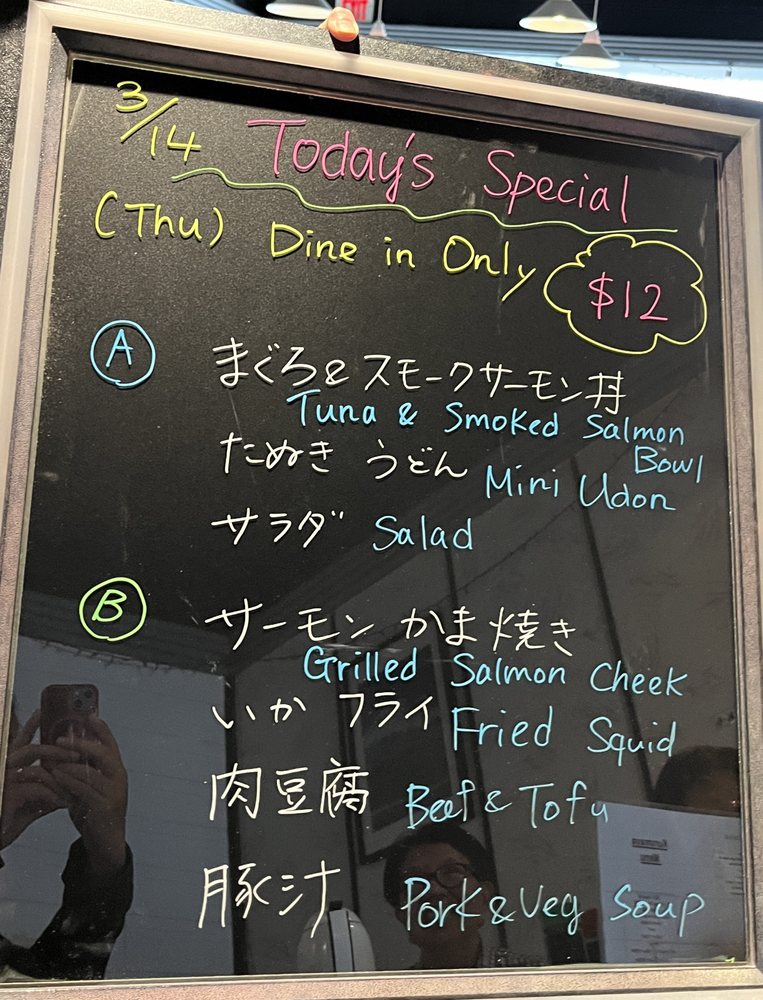 EXIT
3/14 Today's Special
(Thu) Dine in Only $12
A まぐろ&スモークサーモン丼
Tuna & Smoked Salmon Bowl
たぬき うどん Mini Udon
サラダ Salad
B サーモン かま焼き
Grilled Salmon Cheek
いか フライ Fried Squid
肉豆腐 Beef & Tofu
豚汁 Pork & Veg Soup